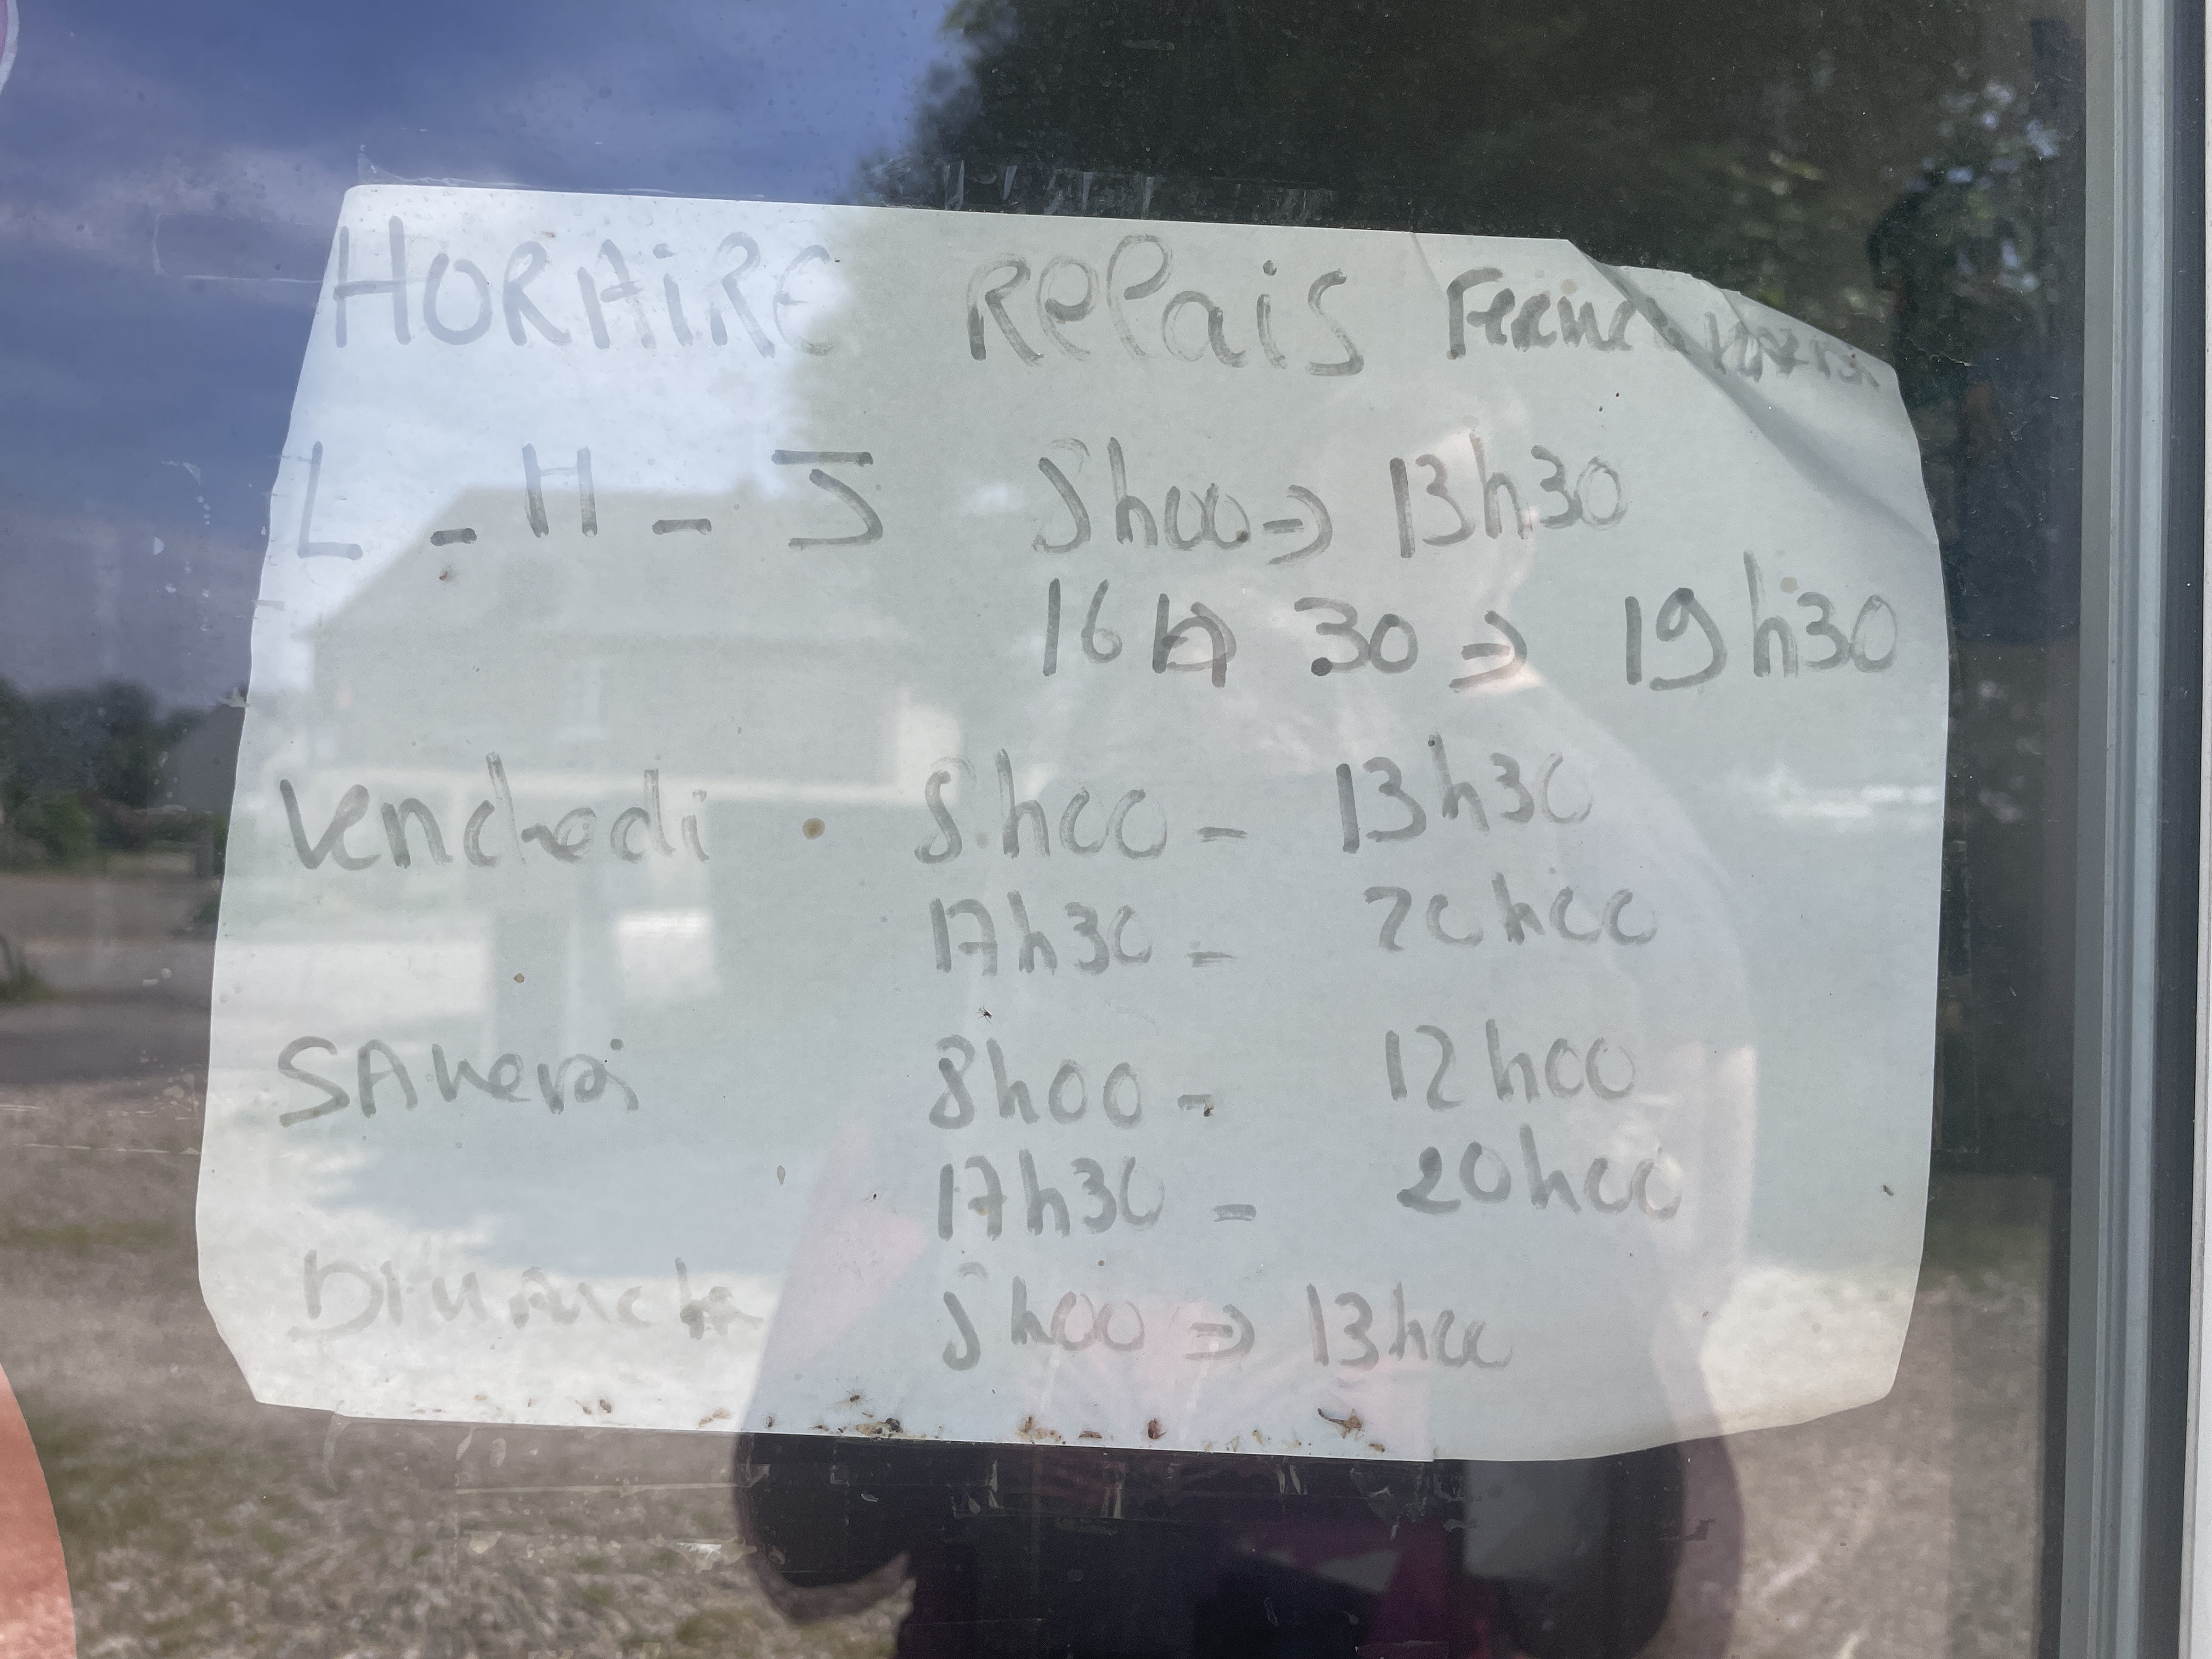 HORAIRE Relais Fermé
L - M - J 8h00 => 13h30
16h30 => 19h30
Vendredi 8h00 - 13h30
17h30 - 20h00
SAMedi 8h00 - 12h00
17h30 - 20h00
DIMANche 8h00 => 13h00